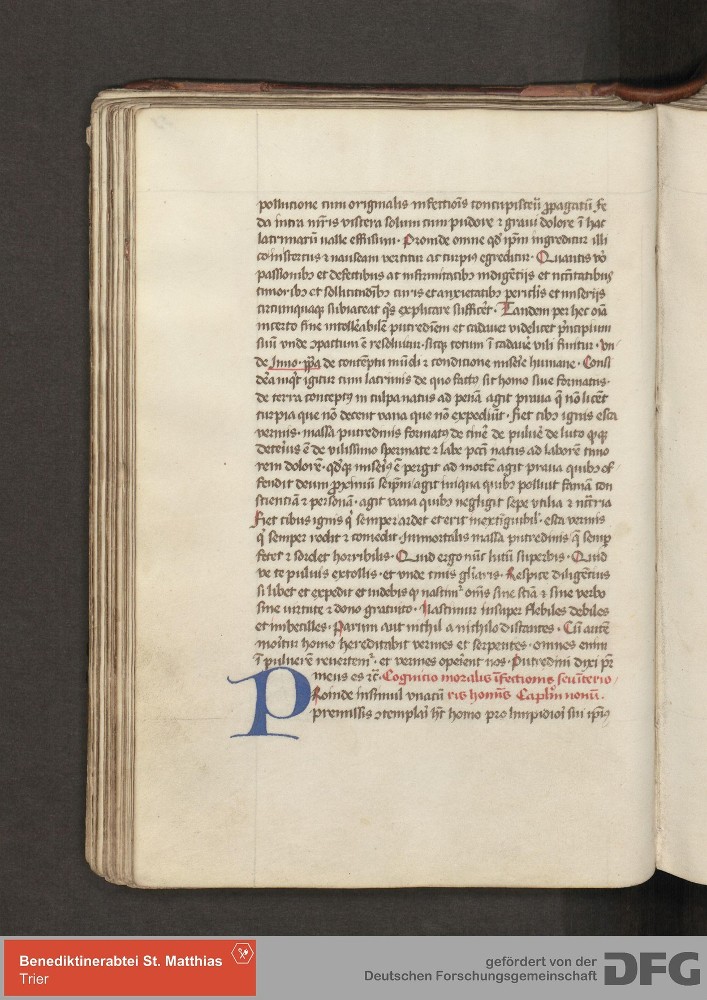 pollutione cum originalis infectiōis concupisceīī ꝓpagatū fe
da intra mr̄is viscera solum cum pudore ⁊ graui dolore ī hac
lacrimarū ualle effisum · Proinde omne qd̄ ip̄m ingreditur illi
⁊ nauseam vertitur ac turpis egreditur · Quantis v̊o
passionibꝫ et defectibus ac infirmitatibꝫ indigētijs et
timoribꝫ et sollicitudībꝫ curis et anxietatibꝫ periclis et miserijs
circumquaqꝫ subiaceat qͥs explicare sufficēt · Tandem per hec oīa
incerto fine intollerabilē putredīem et cadauer videlicet pͥncipium
suū vnde ꝯpactum ē resoluitur · sicqꝫ totum ī cadauē vili finitur · vn
de Inno · ꝑp̄a de contēptu mūdi ⁊ condicione miserie humane · Consi
dēa inqͥt igitur cum lacrimis de quo factꝰ sit homo siue formatus ·
de terra conceptꝰ in culpa natus ad penā agit praua q̄ nō licēt
turpia que nō decent vana que nō expediūt · fiet cibꝰ ignis esca
vermis · massa putredinis formatꝰ de cinē de puluē de luto
deterius ē de vilissimo spermate ⁊ labe pctī natus ad laborē timo
rem dolorē · miserius ē pergit ad mortē agit praua quibꝫ of
fendit deum ꝓximū seip̄m agit iniqua quibꝫ polluit famā con
scienciā ⁊ personā · agit vana quibꝫ negligit sepe vtilia ⁊ nc̄cria
Fiet cibus ignis qͥ semper ardet et erit inextīguibil · esca vermis
qͥ semper rodit ⁊ comedit · Immortalis massa putredinis q̄ semꝑ
fetet ⁊ sordet horribilis · Quid ergo nūc lutū superbis · Quid
ve te puluis extollis · et vnde cinis gl̄iaris · Respice diligēcius
si libet et expedit et indebis ꝙ nascimͬ om̄s sine sciā ⁊ sine verbo
sine virtute ⁊ dono gratuito · Nascimur insuper flebiles debiles
et imbecilles · Parum aut nichil a nichilo distantes · Cū autē
moritur homo hereditabit vermes et serpentes · omnes enim
ī puluerē revertemͬ · et vermes operient nos · Putredini dixi pr̄
meus es ⁊c̄ · Cognicio moralis īfectionis
Proinde insimul vnacū ris homīs Caplm̄ nonū ·
premissis ꝯtemplari hꝫ homo pro limpidiori sui ip̄iꝰ
Benediktinerabtei St. Matthias
Trier
gefördert von der
Deutschen Forschungsgemeinschaft
DFG